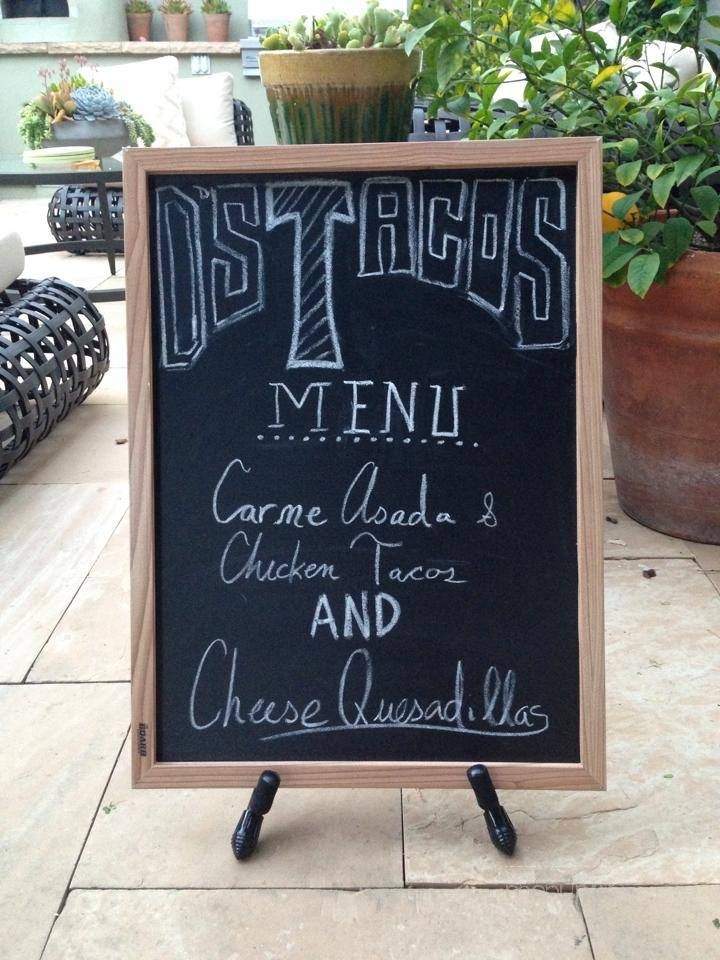 D'S TACOS
MENU
Carne Asada &
Chicken Tacos
AND
Cheese Quesadillas
BOARD